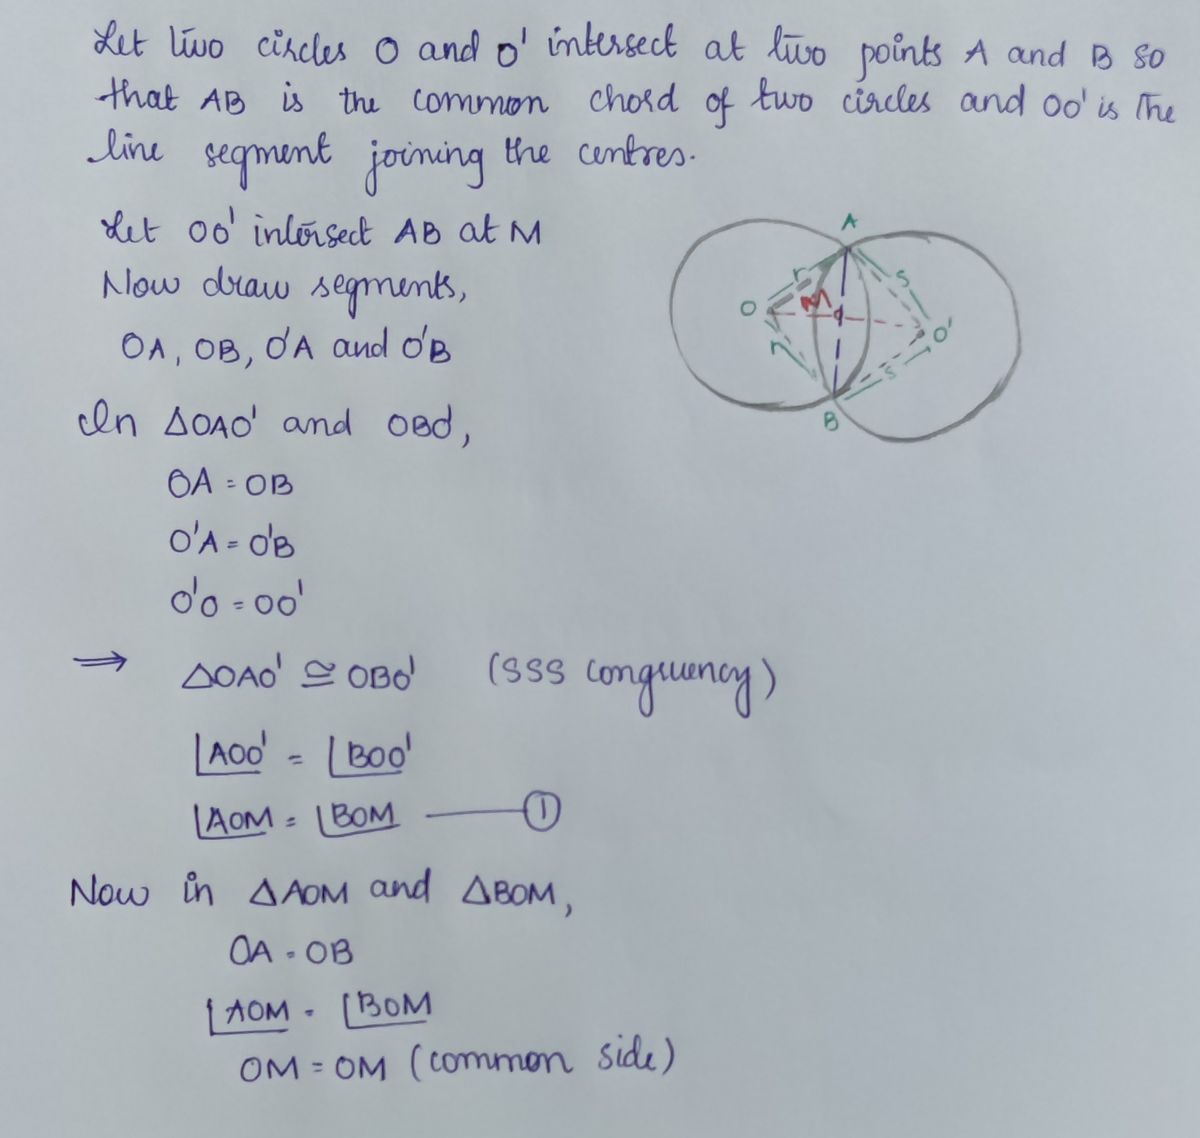 Let two circles O and O' intersect at two points A and B so
that AB is the common chord of two circles and OO' is The
line segment joining the centres.
Let OO' intersect AB at M
Now draw segments,
OA, OB, O'A and O'B
A
r
s
O
M
O'
r
s
B
In ΔOAO' and OBO',
OA = OB
O'A = O'B
O'O = OO'
⇒ ΔOAO' ≅ OBO' (SSS congruency)
∠AOO' = ∠BOO'
∠AOM = ∠BOM —— ①
Now in ΔAOM and ΔBOM,
OA = OB
∠AOM = ∠BOM
OM = OM (common side)